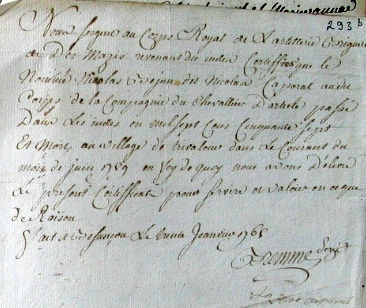 293 b
Nous sergue au Corps Royal de Lartillerie
de Des Mazis revenant des indes Certiffions que le
Nommé Nicolas Grejun dit Nicolas Caporal audit
Corps de la Compagnie du Chevallier D'artois passé
Dans Les indes en mil sept Cens Cinquante Sept
Est Mort, au village de trivalour dans Le Courant du
mois de juin 1759 en foy de quoy nous avons Délivré
Le present Certifficat pour servire et valoir en ce que
de Raison
fait a Besançon Le trente Janvier 1765